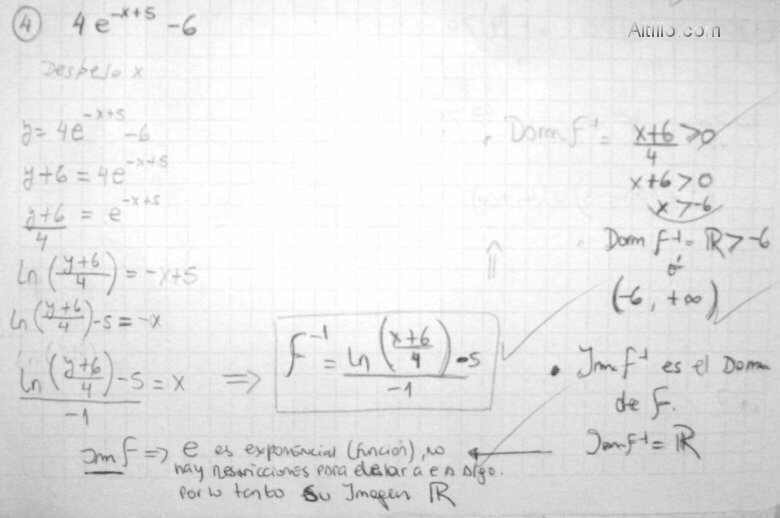 ④ 4 e^{-x+5} - 6
Altillo.com
Despejo x
y = 4e^{-x+5} - 6
y+6 = 4e^{-x+5}
\frac{y+6}{4} = e^{-x+5}
Ln (\frac{y+6}{4}) = -x+5
Ln (\frac{y+6}{4}) - 5 = -x
\frac{Ln (\frac{y+6}{4}) - 5}{-1} = x ⇒ f^{-1} = \frac{Ln (\frac{x+6}{4}) - 5}{-1}
Im f ⇒ e es exponencial (función), no
hay restricciones para elevar a e a algo.
Por lo tanto su Imagen ℝ
• Dom f^{-1} = \frac{x+6}{4} > 0
x+6 > 0
x > -6
Dom f^{-1} = ℝ > -6
ó
(-6, +∞)
• Im f^{-1} es el Dom
de f.
Im f^{-1} = ℝ